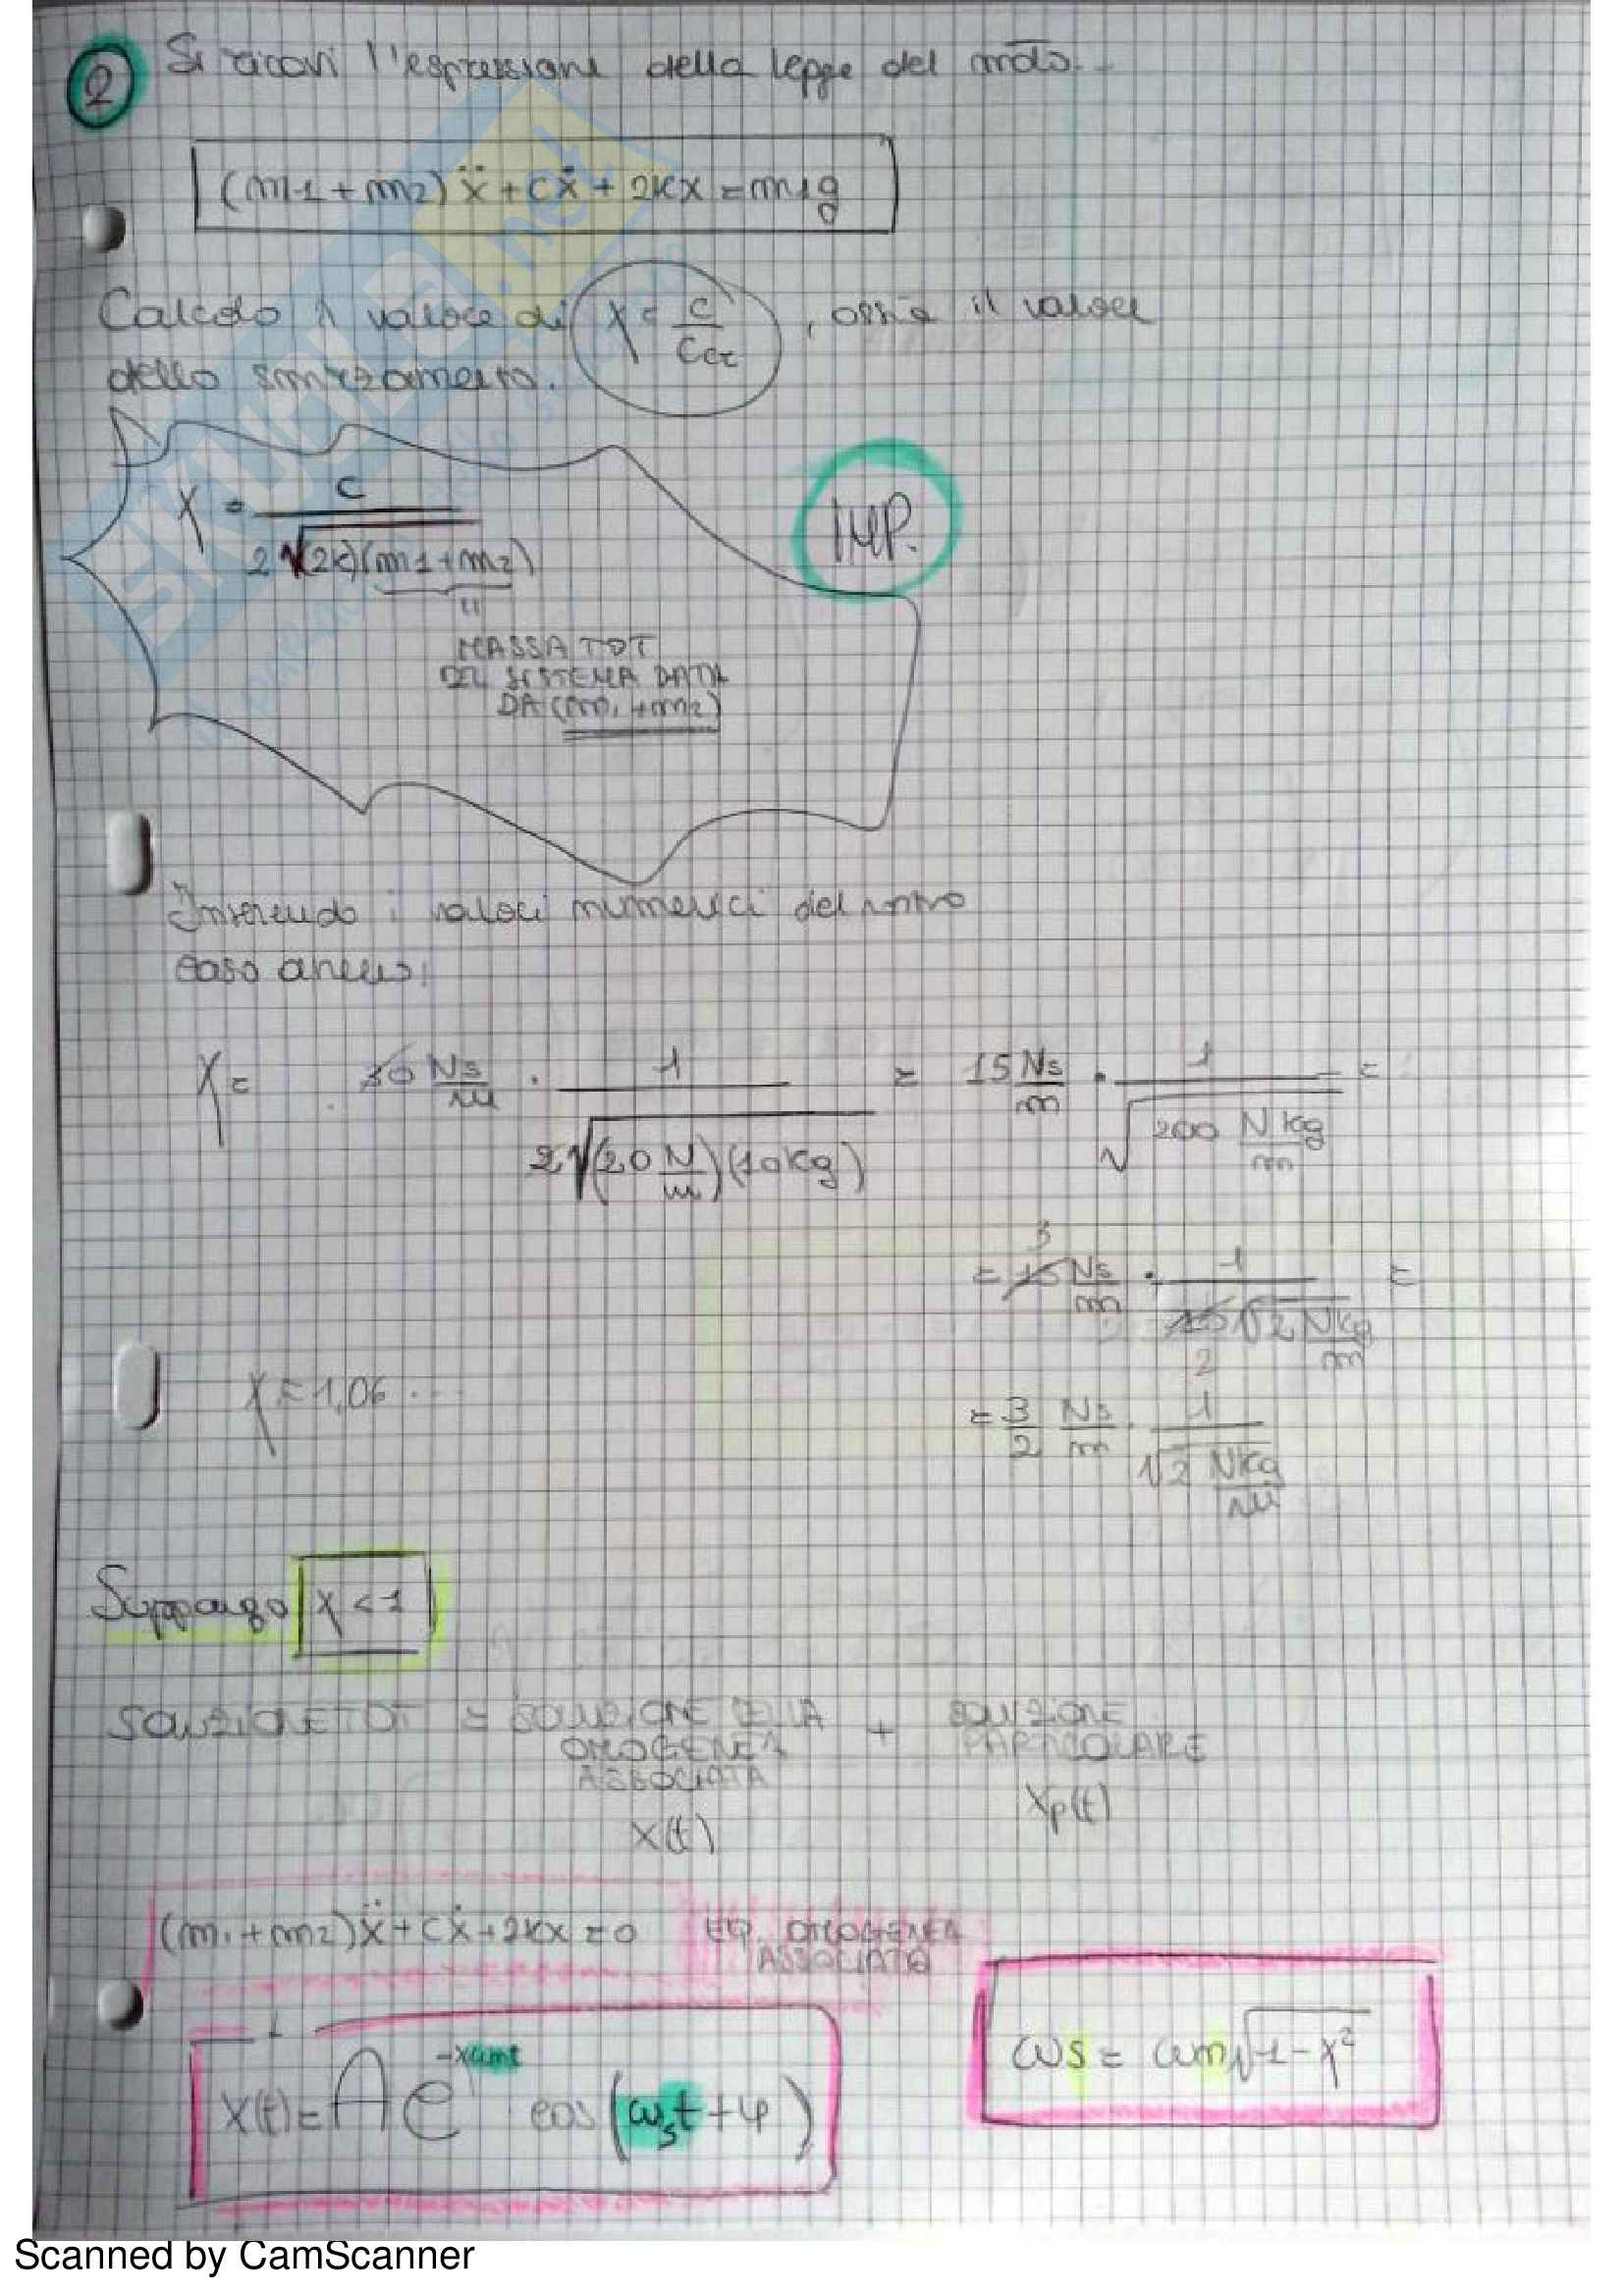 2 Si ricavi l'espressione della legge del moto.
(m1+m2)ẍ+cẋ+2kx=m1g
Calcolo il valore di χ = c/ccr , ossia il valore
dello smorzamento.
χ = c / 2√(2k)(m1+m2)
IMP.
MASSA TOT
DEL SISTEMA DATA
DA (m1+m2)
Inserendo i valori numerici del nostro
caso avremo:
χ = 30 Ns/m · 1 / 2√(20 N/m)(10kg) = 15 Ns/m · 1 / √200 N kg/m =
= 15 3 Ns/m · 1 / 10 2 √2 N kg/m =
χ = 1,06...
= 3/2 Ns/m · 1 / √2 N kg/m
Suppongo χ<1
SOLUZIONE TOT = SOLUZIONE DELLA OMOGENEA ASSOCIATA + SOLUZIONE PARTICOLARE
x(t) xp(t)
(m1+m2)ẍ+cẋ+2kx=0 EQ. OMOGENEA
ASSOCIATA
ωs = ωn√1-χ²
x(t)= A e^-χωnt cos(ωst+φ)
SKUOLA.net
Scanned by CamScanner